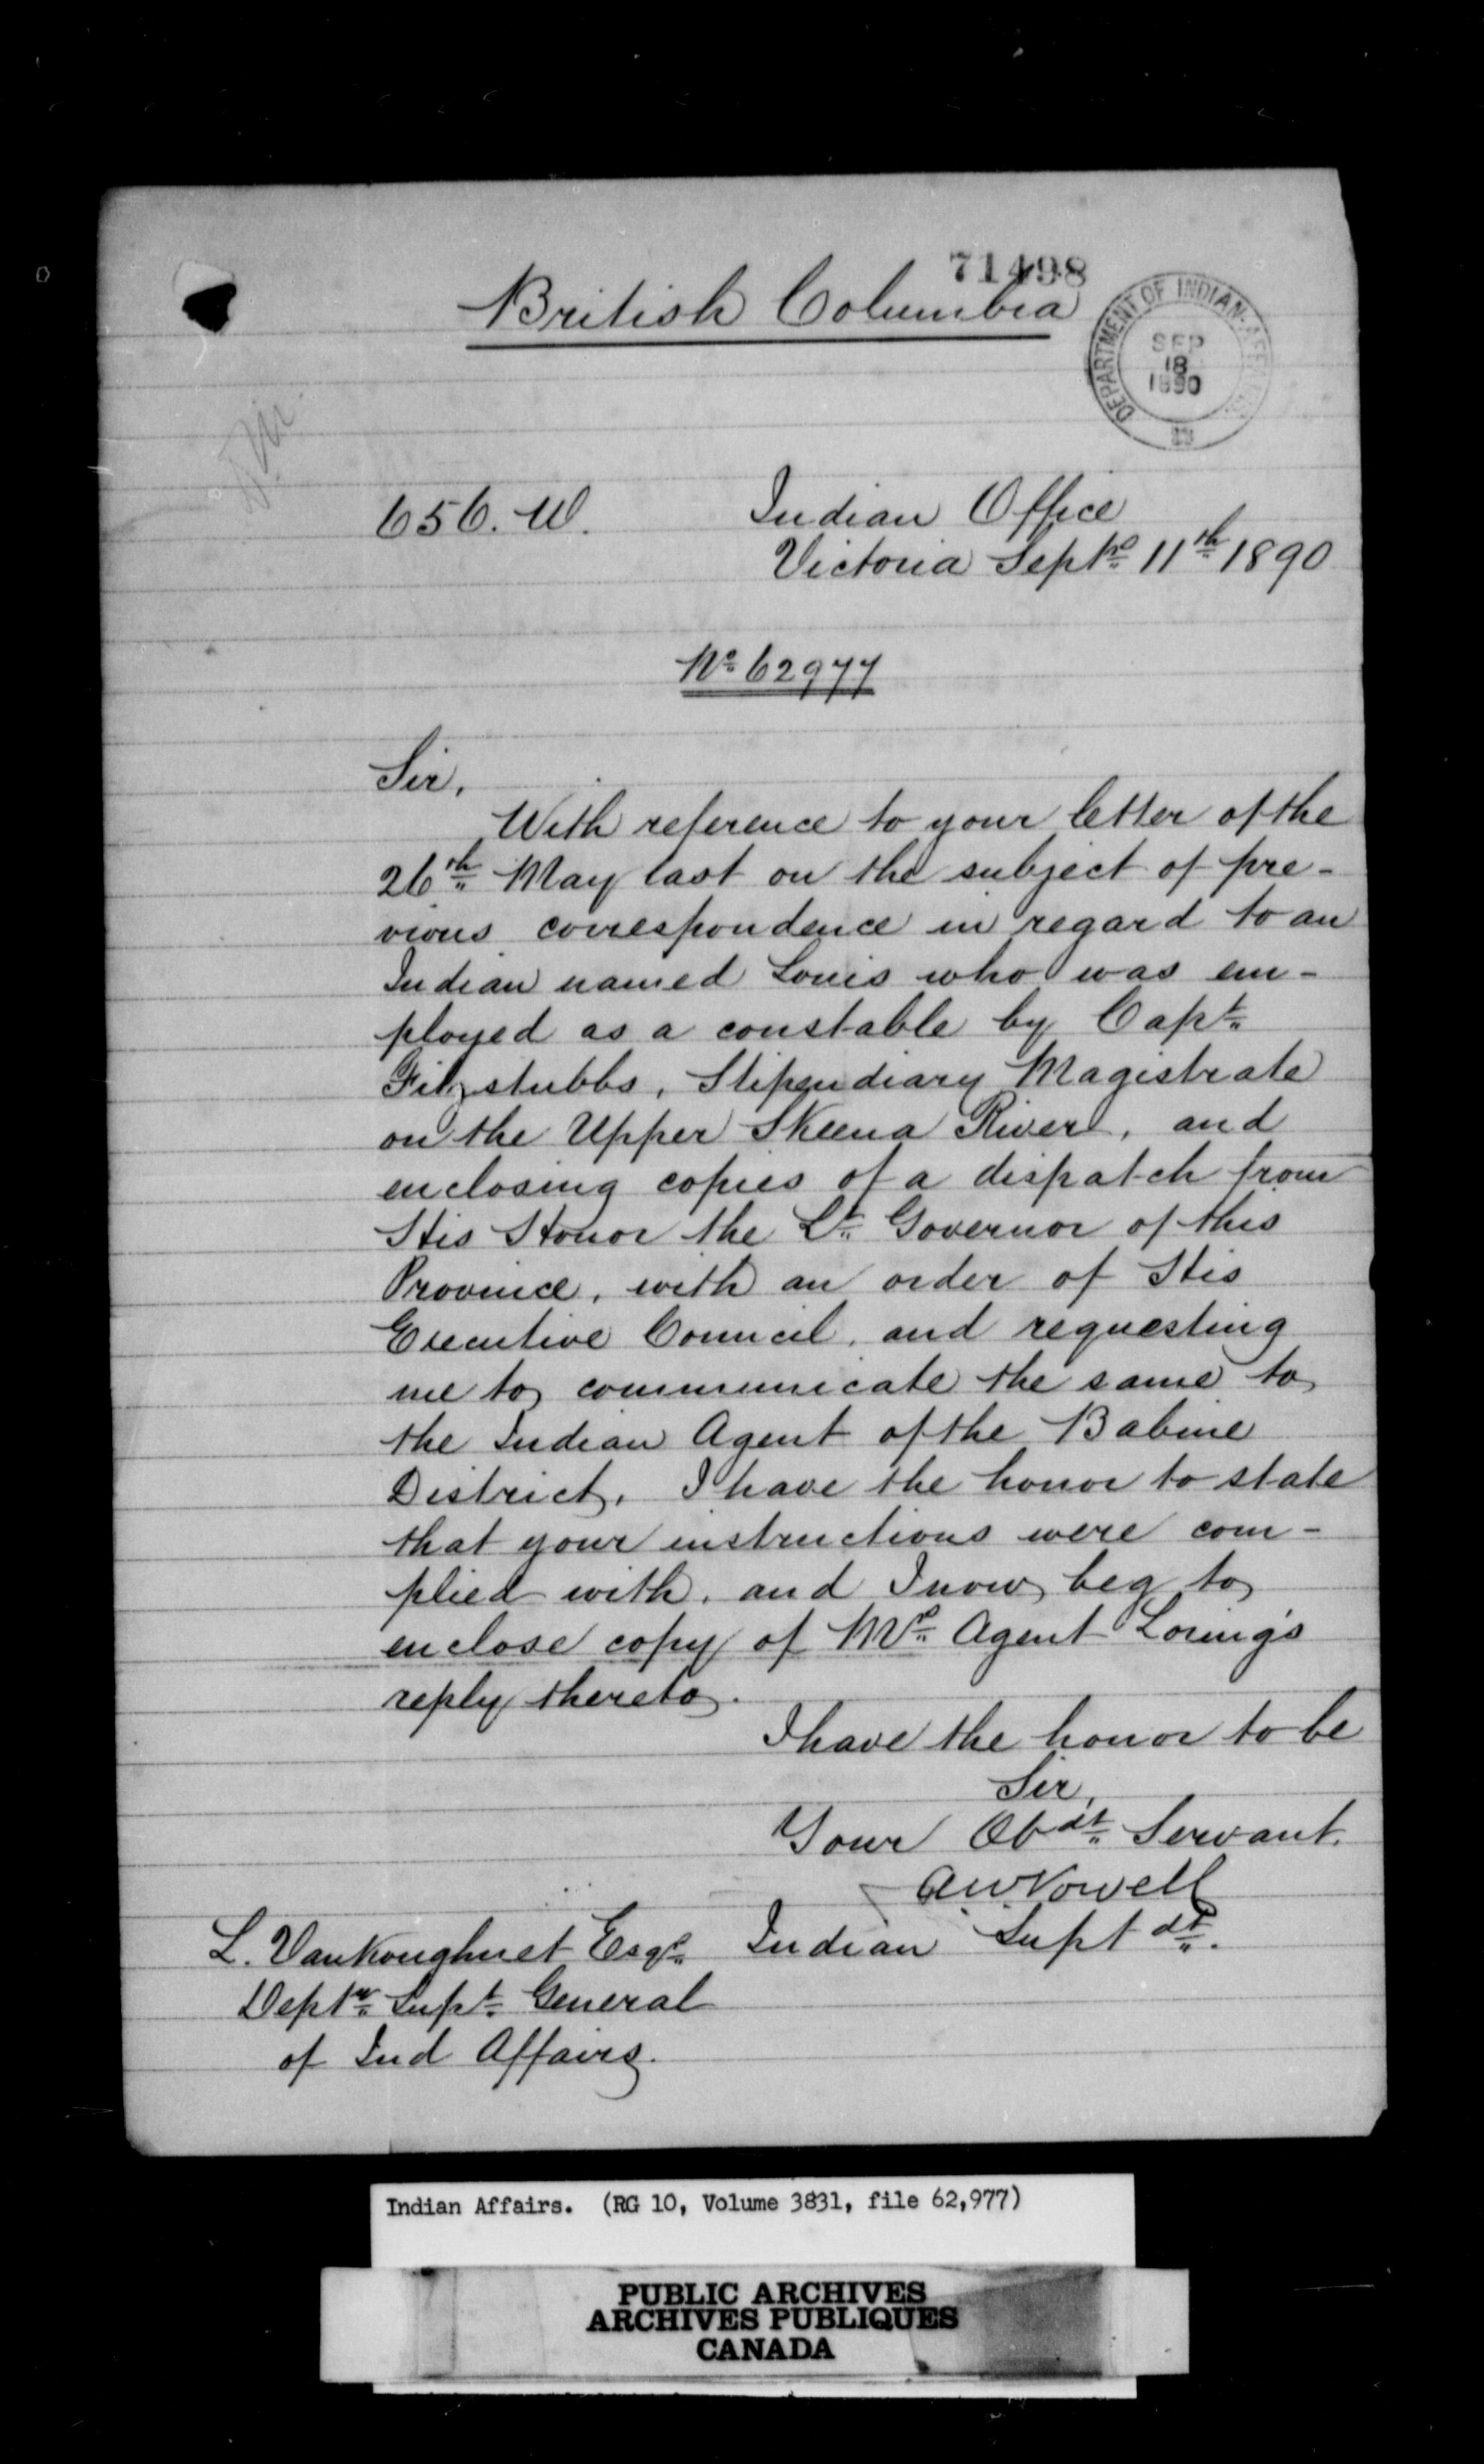 71498
British Columbia
DEPARTMENT OF INDIAN AFFAIRS
SEP
18
1890
656. W.
Indian Office
Victoria Septr 11th 1890
No 62977
Sir,
With reference to your letter of the
26th May last on the subject of pre-
vious correspondence in regard to an
Indian named Louis who was em-
ployed as a constable by Capt.
Fitzstubbs, Stipendiary Magistrate
on the Upper Skeena River, and
enclosing copies of a dispatch from
His Honor the Lt. Governor of this
Province, with an order of His
Executive Council, and requesting
me to communicate the same to
the Indian Agent of the Babine
District, I have the honor to state
that your instructions were com-
plied with, and I now beg to
enclose copy of Mr. Agent Loring's
reply thereto.
I have the honor to be
Sir,
Your Obdt. Servant.
AWVowell
Indian Suptdt.
L. VanKoughnet Esqr.
Depty. Supt. General
of Ind Affairs.
Indian Affairs. (RG 10, Volume 3831, file 62,977)
PUBLIC ARCHIVES
ARCHIVES PUBLIQUES
CANADA